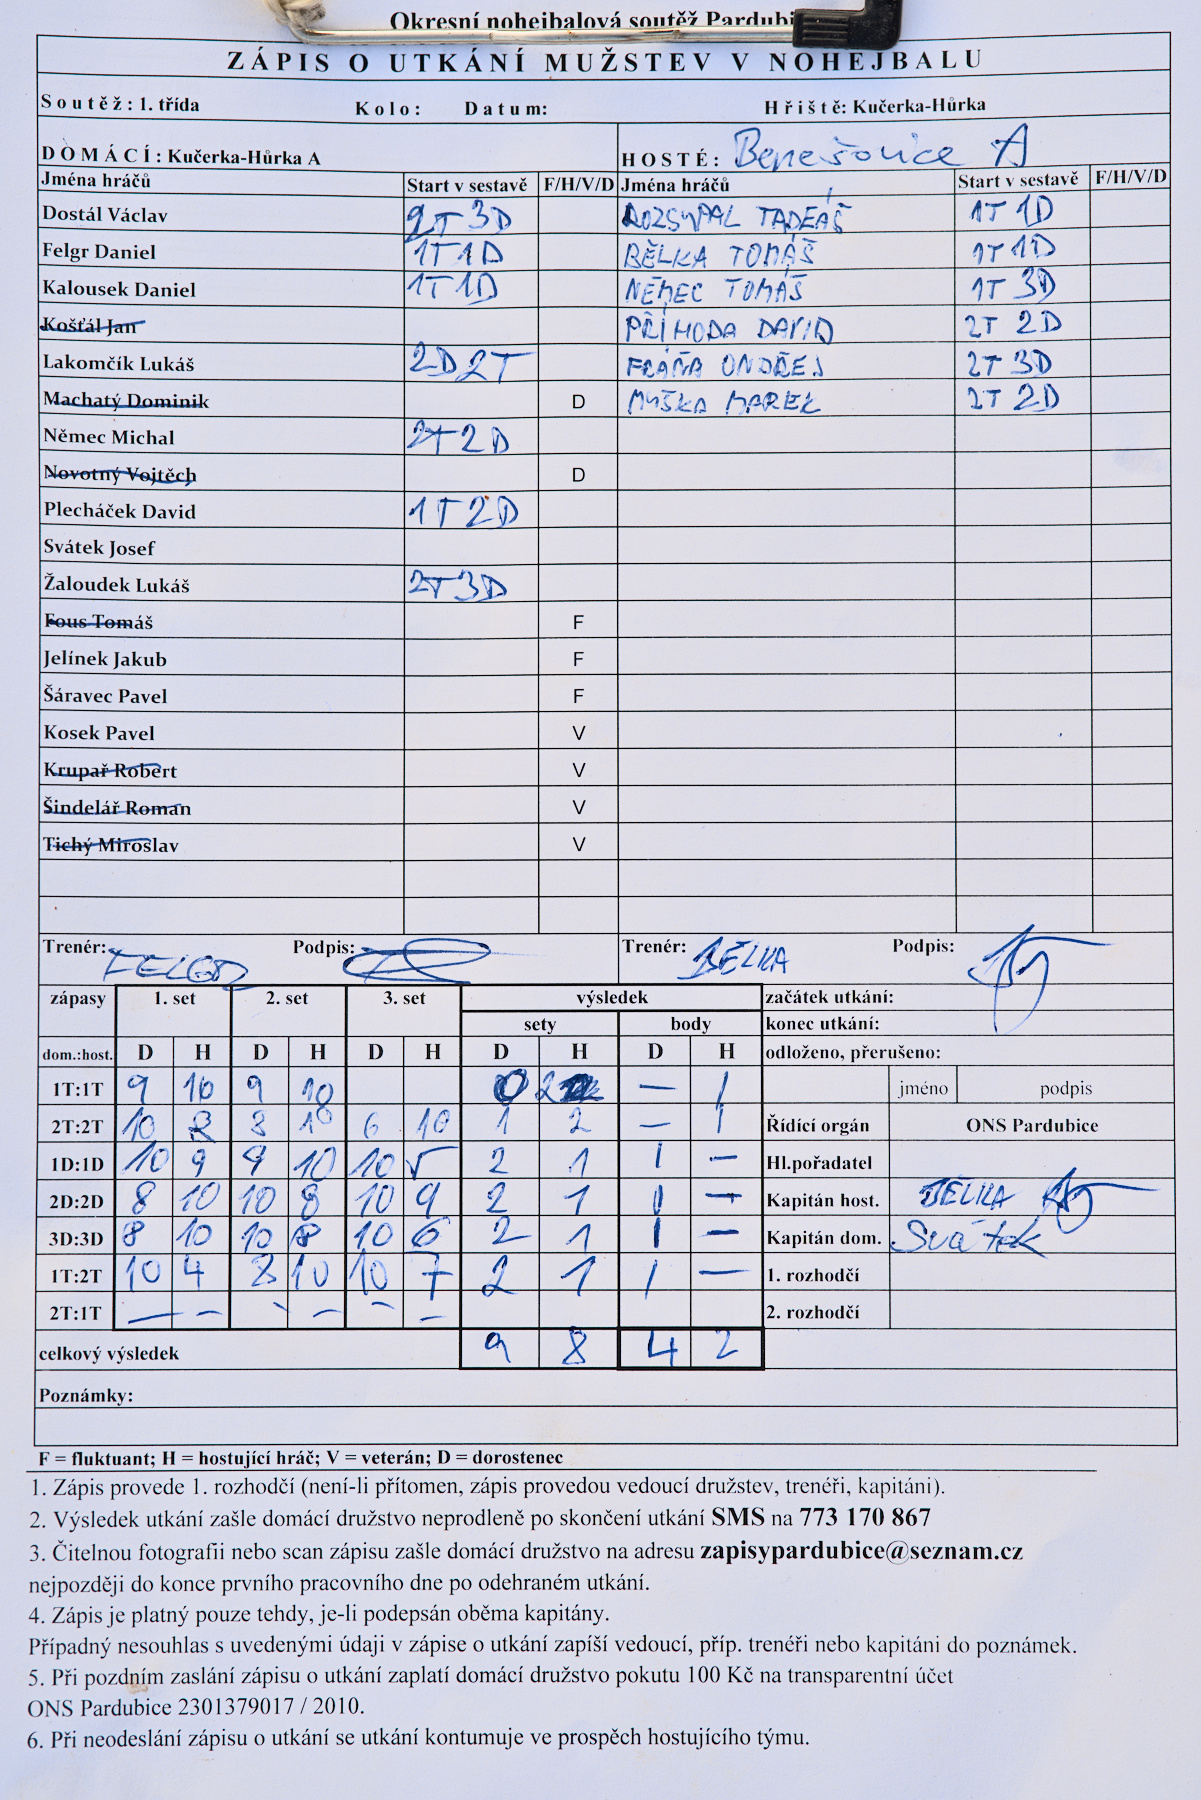 Okresní nohejbalová soutěž
ZÁPIS O UTKÁNÍ MUŽSTEV V NOHEJBALU
Soutěž: 1. třída Kolo: Datum: Hřiště: Kučerka-Hůrka
DOMÁCÍ: Kučerka-Hůrka A HOSTÉ: Benešovice A
Jména hráčů Start v sestavě F/H/V/D Jména hráčů Start v sestavě F/H/V/D
Dostál Václav 2T 3D ROZSYPAL TADEÁŠ 1T 1D
Felgr Daniel 1T 1D BĚLKA TOMÁŠ 1T 1D
Kalousek Daniel 1T 1D NĚMEC TOMÁŠ 1T 3D
Košťál Jan PŘÍHODA DAVID 2T 2D
Lakomčík Lukáš 2D 2T FRÁŇA ONDŘEJ 2T 3D
Machatý Dominik D MUŠKA MAREK 2T 2D
Němec Michal 2T 2D
Novotný Vojtěch D
Plecháček David 1T 2D
Svátek Josef
Žaloudek Lukáš 2T 3D
Fous Tomáš F
Jelínek Jakub F
Šáravec Pavel F
Kosek Pavel V
Krupař Robert V
Šindelář Roman V
Tichý Miroslav V
Trenér: FELGR Podpis: Trenér: BĚLKA Podpis:
zápasy 1. set 2. set 3. set výsledek začátek utkání:
sety body konec utkání:
dom.:host. D H D H D H D H D H odloženo, přerušeno:
1T:1T 9 10 9 10 0 2 — 1 jméno podpis
2T:2T 10 8 8 10 6 10 1 2 — 1 Řídící orgán ONS Pardubice
1D:1D 10 9 9 10 10 5 2 1 1 — Hl.pořadatel
2D:2D 8 10 10 8 10 9 2 1 1 — Kapitán host. BĚLKA
3D:3D 8 10 10 8 10 6 2 1 1 — Kapitán dom. Svátek
1T:2T 10 4 8 10 10 7 2 1 1 — 1. rozhodčí
2T:1T — — — — — — 2. rozhodčí
celkový výsledek 9 8 4 2
Poznámky:
F = fluktuant; H = hostující hráč; V = veterán; D = dorostenec
1. Zápis provede 1. rozhodčí (není-li přítomen, zápis provedou vedoucí družstev, trenéři, kapitáni).
2. Výsledek utkání zašle domácí družstvo neprodleně po skončení utkání SMS na 773 170 867
3. Čitelnou fotografii nebo scan zápisu zašle domácí družstvo na adresu zapisypardubice@seznam.cz
nejpozději do konce prvního pracovního dne po odehraném utkání.
4. Zápis je platný pouze tehdy, je-li podepsán oběma kapitány.
Případný nesouhlas s uvedenými údaji v zápise o utkání zapíší vedoucí, příp. trenéři nebo kapitáni do poznámek.
5. Při pozdním zaslání zápisu o utkání zaplatí domácí družstvo pokutu 100 Kč na transparentní účet
ONS Pardubice 2301379017 / 2010.
6. Při neodeslání zápisu o utkání se utkání kontumuje ve prospěch hostujícího týmu.